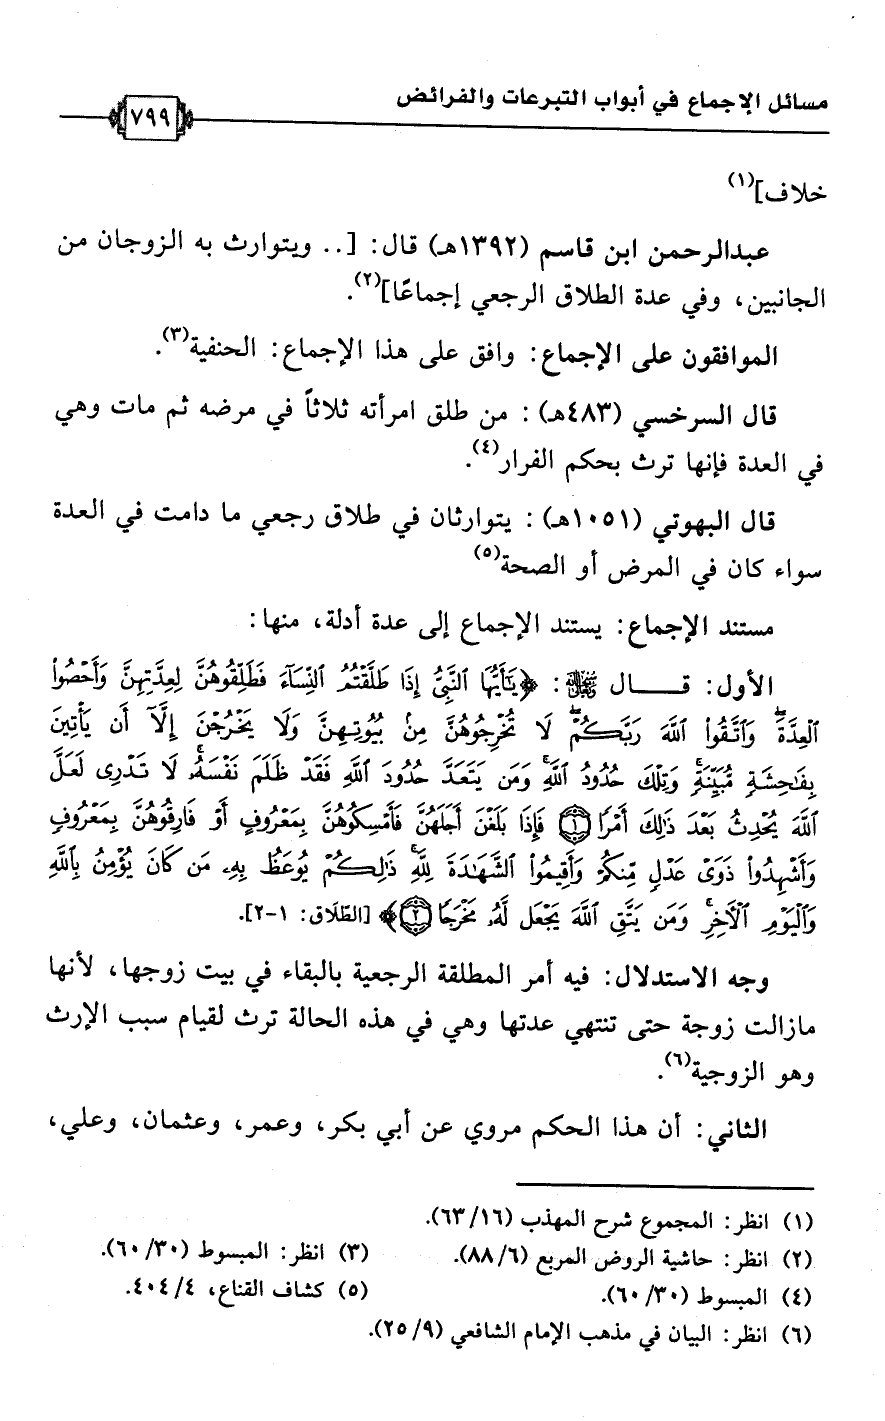 مسائل الإجماع في أبواب التبرعات والفرائض
٧٩٩
خلاف](١)
عبدالرحمن ابن قاسم (١٣٩٢هـ) قال: [.. ويتوارث به الزوجان من
الجانبين، وفي عدة الطلاق الرجعي إجماعًا](٢).
الموافقون على الإجماع: وافق على هذا الإجماع: الحنفية(٣).
قال السرخسي (٤٨٣هـ) : من طلق امرأته ثلاثاً في مرضه ثم مات وهي
في العدة فإنها ترث بحكم الفرار(٤).
قال البهوتي (١٠٥١هـ) : يتوارثان في طلاق رجعي ما دامت في العدة
سواء كان في المرض أو الصحة(٥)
مستند الإجماع: يستند الإجماع إلى عدة أدلة، منها:
الأول: قـــال ﷻ: ﴿يَٰٓأَيُّهَا ٱلنَّبِىُّ إِذَا طَلَّقْتُمُ ٱلنِّسَآءَ فَطَلِّقُوهُنَّ لِعِدَّتِهِنَّ وَأَحْصُوا۟
ٱلْعِدَّةَ ۖ وَٱتَّقُوا۟ ٱللَّهَ رَبَّكُمْ ۖ لَا تُخْرِجُوهُنَّ مِنۢ بُيُوتِهِنَّ وَلَا يَخْرُجْنَ إِلَّآ أَن يَأْتِينَ
بِفَٰحِشَةٍ مُّبَيِّنَةٍ ۚ وَتِلْكَ حُدُودُ ٱللَّهِ ۚ وَمَن يَتَعَدَّ حُدُودَ ٱللَّهِ فَقَدْ ظَلَمَ نَفْسَهُۥ ۚ لَا تَدْرِى لَعَلَّ
ٱللَّهَ يُحْدِثُ بَعْدَ ذَٰلِكَ أَمْرًا ١ فَإِذَا بَلَغْنَ أَجَلَهُنَّ فَأَمْسِكُوهُنَّ بِمَعْرُوفٍ أَوْ فَارِقُوهُنَّ بِمَعْرُوفٍ
وَأَشْهِدُوا۟ ذَوَىْ عَدْلٍ مِّنكُمْ وَأَقِيمُوا۟ ٱلشَّهَٰدَةَ لِلَّهِ ۚ ذَٰلِكُمْ يُوعَظُ بِهِۦ مَن كَانَ يُؤْمِنُ بِٱللَّهِ
وَٱلْيَوْمِ ٱلْءَاخِرِ ۚ وَمَن يَتَّقِ ٱللَّهَ يَجْعَل لَّهُۥ مَخْرَجًا ٢﴾ [الطّلَاق: ١-٢].
وجه الاستدلال: فيه أمر المطلقة الرجعية بالبقاء في بيت زوجها، لأنها
مازالت زوجة حتى تنتهي عدتها وهي في هذه الحالة ترث لقيام سبب الإرث
وهو الزوجية(٦).
الثاني: أن هذا الحكم مروي عن أبي بكر، وعمر، وعثمان، وعلي،
(١) انظر: المجموع شرح المهذب (٦٣/١٦).
(٢) انظر: حاشية الروض المربع (٨٨/٦). (٣) انظر: المبسوط (٦٠/٣٠).
(٤) المبسوط (٦٠/٣٠). (٥) كشاف القناع، ٤٠٤/٤.
(٦) انظر: البيان في مذهب الإمام الشافعي (٢٥/٩).